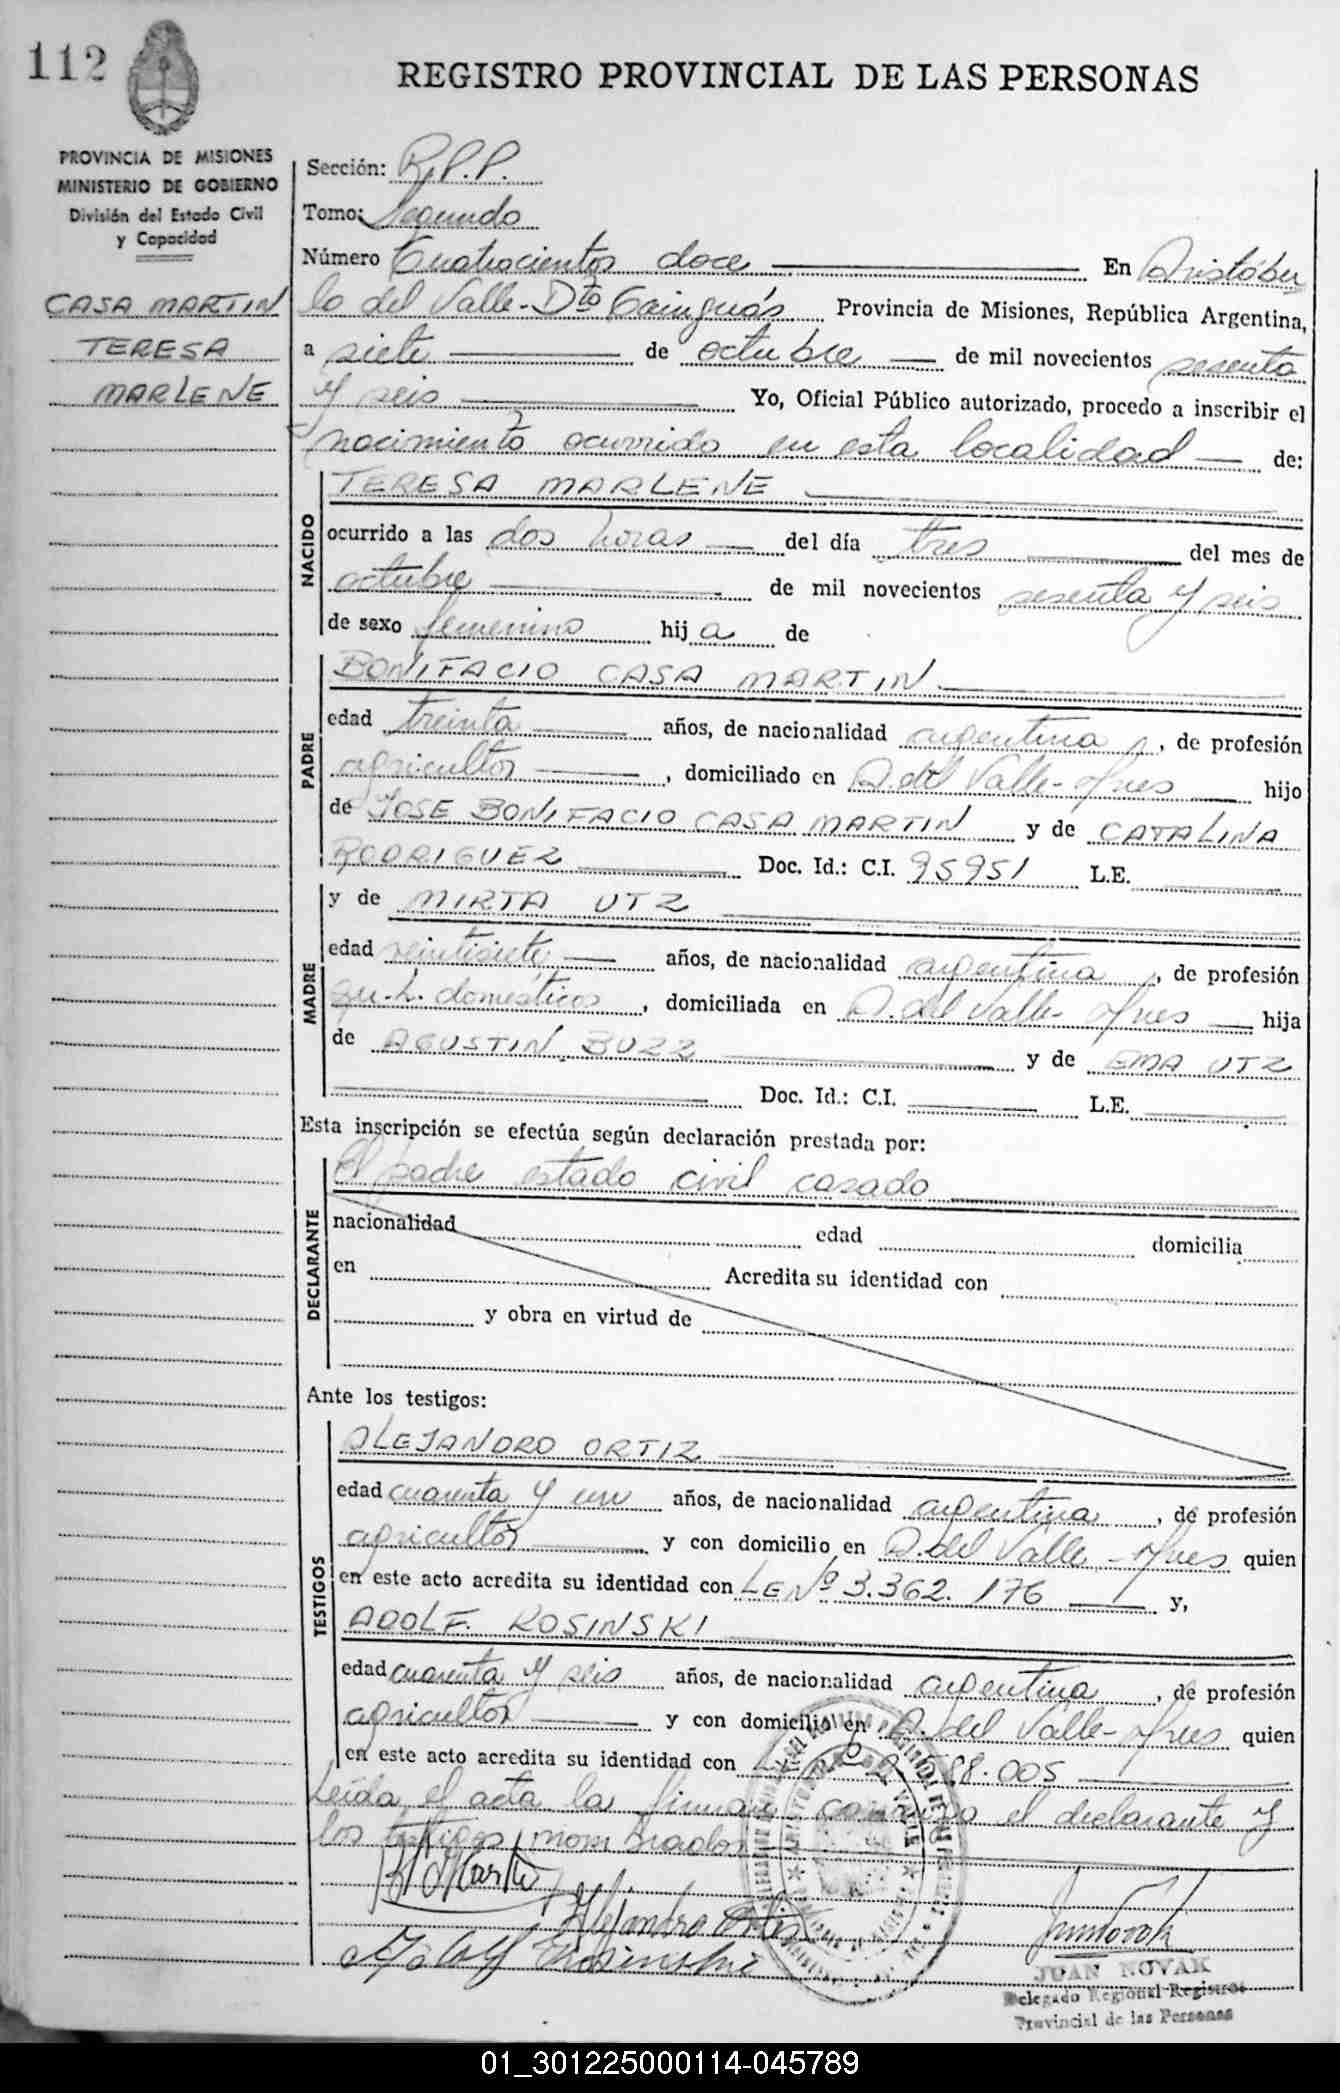 112
REGISTRO PROVINCIAL DE LAS PERSONAS
PROVINCIA DE MISIONES
MINISTERIO DE GOBIERNO
División del Estado Civil
y Capacidad
CASA MARTIN
TERESA
MARLENE
Sección: R.P.P.
Tomo: Segundo
Número Cuatrocientos doce En Aristóbu
lo del Valle-Dto Cainguás Provincia de Misiones, República Argentina,
a siete de octubre de mil novecientos sesenta
y seis Yo, Oficial Público autorizado, procedo a inscribir el
nacimiento ocurrido en esta localidad de:
NACIDO
TERESA MARLENE
ocurrido a las dos horas del día tres del mes de
octubre de mil novecientos sesenta y seis
de sexo femenino hija de
PADRE
BONIFACIO CASA MARTIN
edad treinta años, de nacionalidad argentina, de profesión
agricultor, domiciliado en A. del Valle-Mnes hijo
de JOSE BONIFACIO CASA MARTIN y de CATALINA
RODRIGUEZ Doc. Id.: C.I. 95951 L.E.
MADRE
y de MIRTA UTZ
edad veintisiete años, de nacionalidad argentina, de profesión
qu-h. domésticos, domiciliada en A. del Valle- Mnes hija
de AGUSTIN BUZZ y de EMA UTZ
Doc. Id.: C.I. L.E.
Esta inscripción se efectúa según declaración prestada por:
DECLARANTE
El padre estado civil casado
nacionalidad edad domicilia
en Acredita su identidad con
y obra en virtud de
Ante los testigos:
TESTIGOS
ALEJANDRO ORTIZ
edad cuarenta y un años, de nacionalidad argentina, de profesión
agricultor y con domicilio en A. del Valle-Mnes quien
en este acto acredita su identidad con LE Nº 3.362.176 y,
ADOLF. ROSINSKI
edad cuarenta y seis años, de nacionalidad argentina, de profesión
agricultor y con domicilio en A. del Valle-Mnes quien
en este acto acredita su identidad con 88.005
Leída el acta la firman conmigo el declarante y
los testigos nombrados
Alejandro Ortiz
JUAN NOVAK
Delegado Regional Registro
Provincial de las Personas
01_301225000114-045789